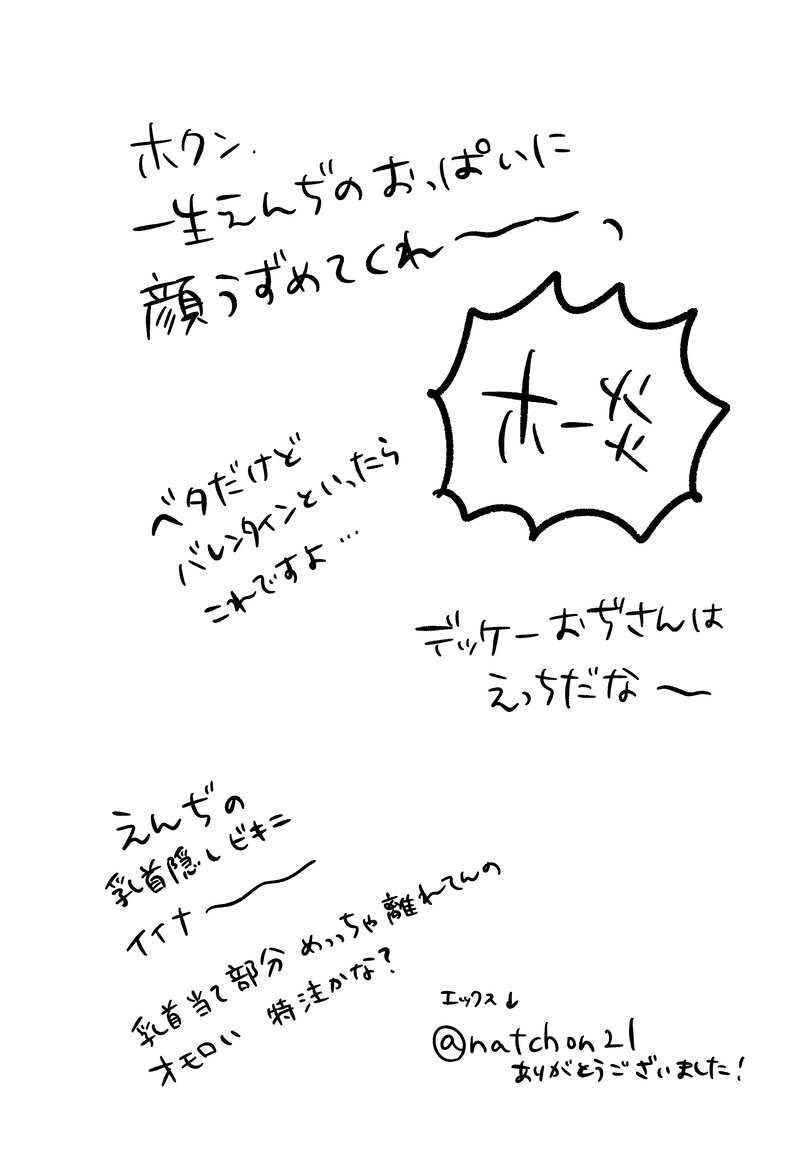 ホクン.
一生えんぢのおっぱいに
顔うずめてくれ〜〜っ
ホー炎
ベタだけど
バレンタインといったら
これですよ…
デッケーおぢさんは
えっちだな〜
えんぢの
乳首隠しビキニ
イイナ〜〜
乳首当て部分めっっちゃ離れてんの
オモロい 特注かな?
エックス↓
@natchon21
ありがとうございました!